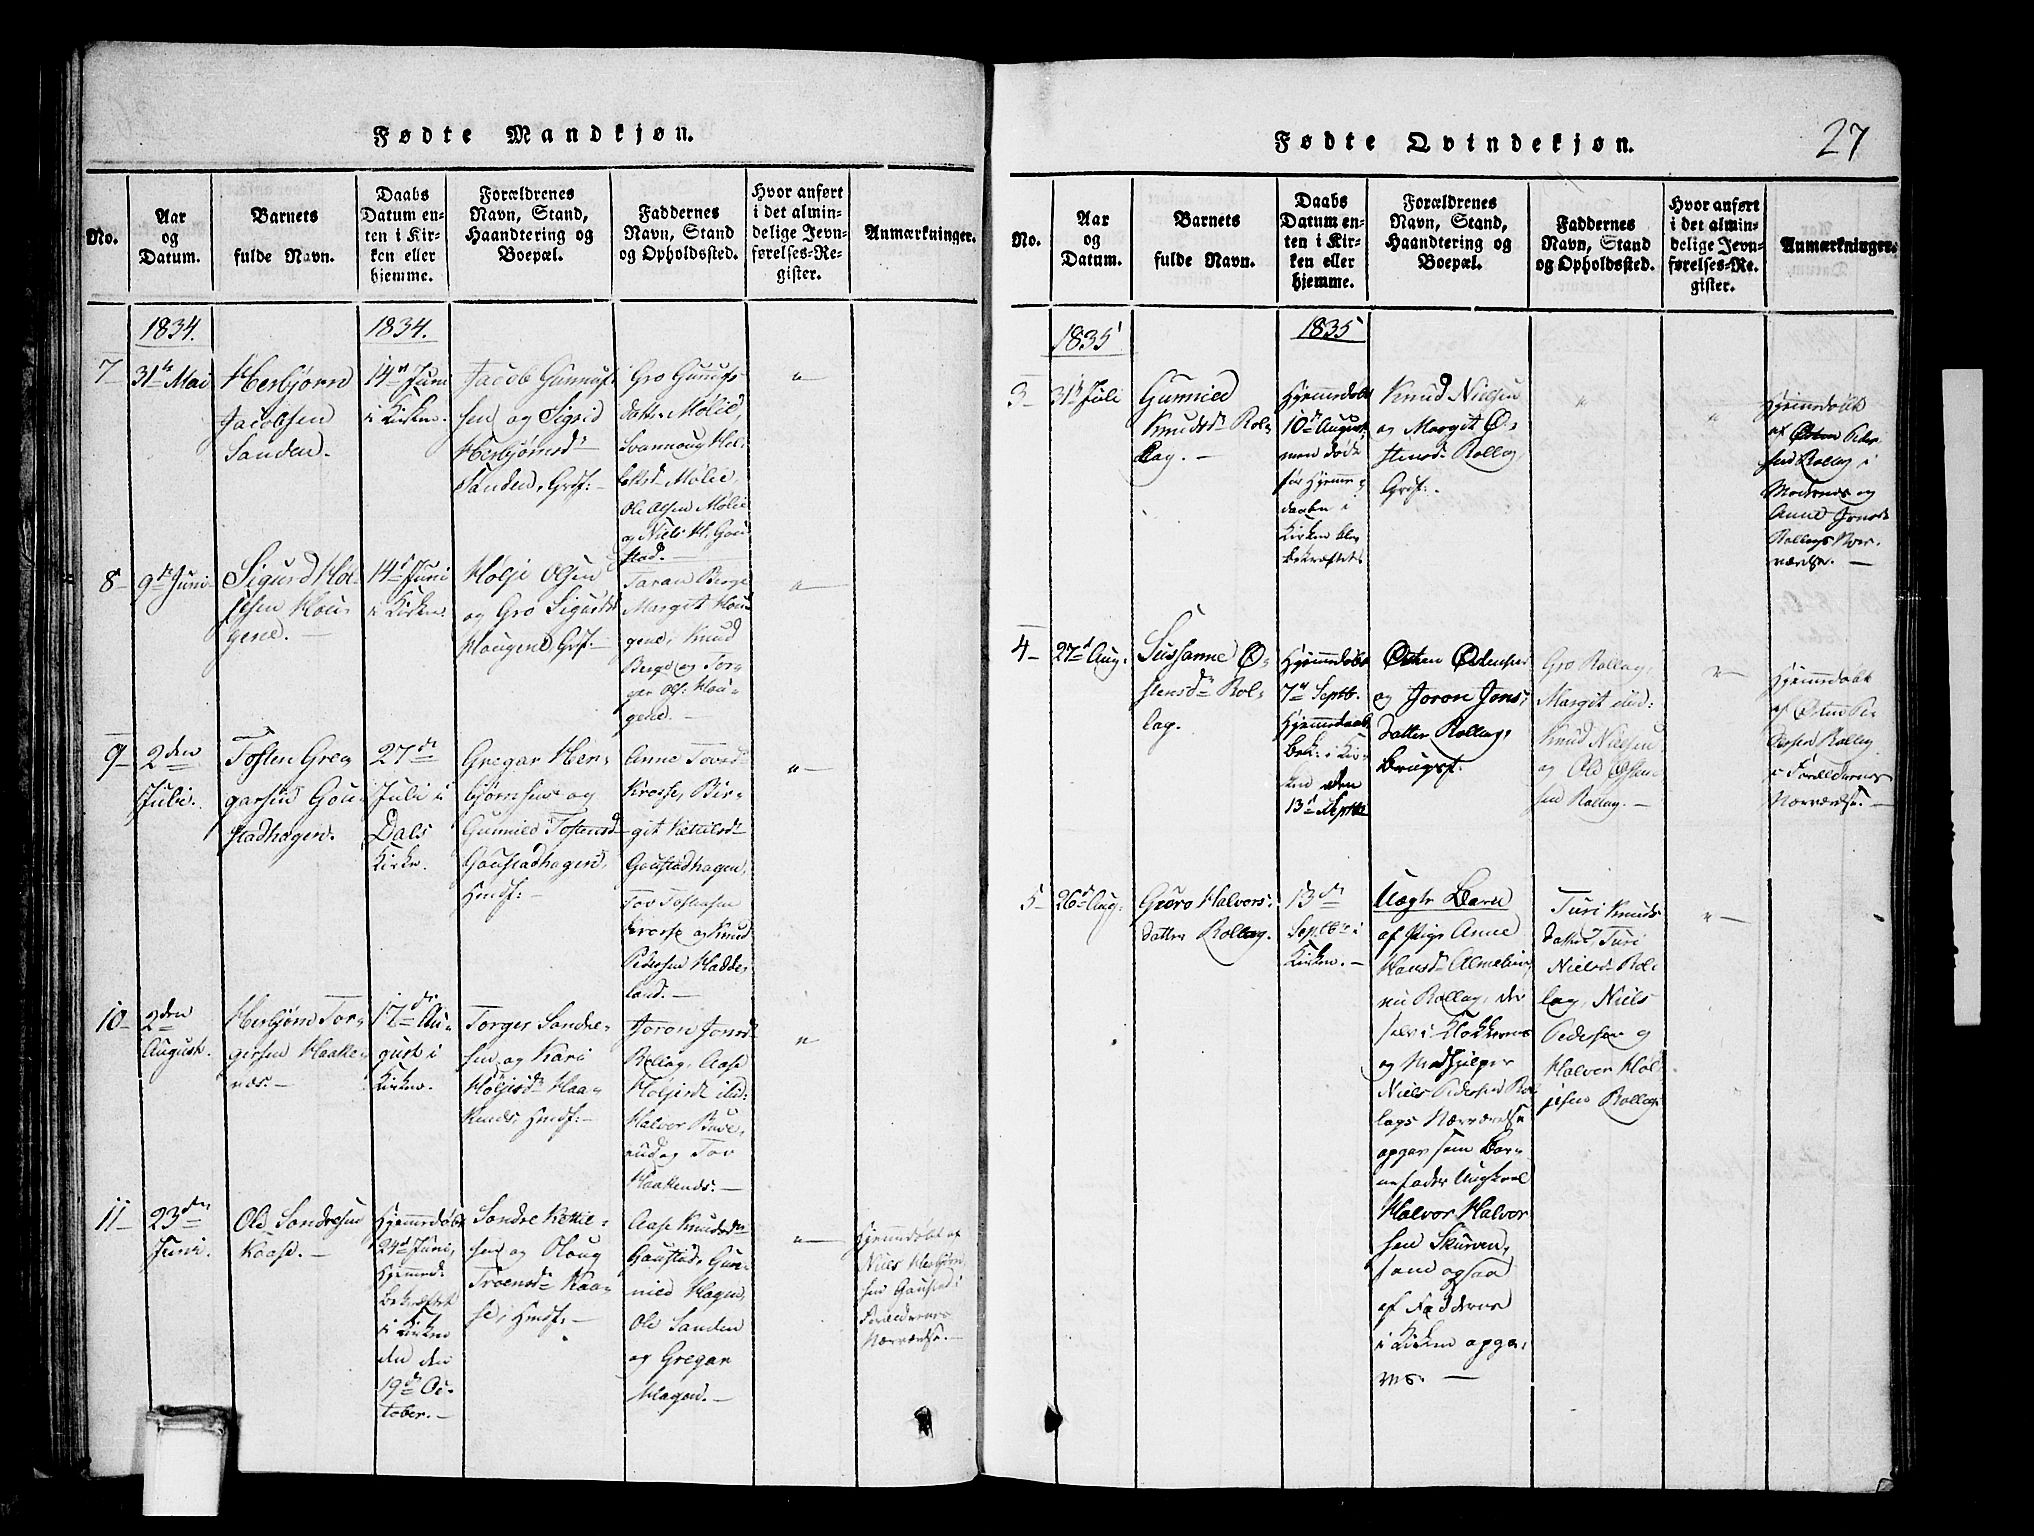 Fødte Mandkjøn.
No.
Aar
og
Datum.
Barnets
fulde Navn.
Daabs
Datum en-
ten i Kir-
ken eller
hjemme.
Forældrenes
Navn, Stand,
Haandtering og
Boepæl.
Faddernes
Navn, Stand
og Opholdssted.
Hvor anført
i det almin-
delige Jevn-
førelses-Re-
gister.
Anmærkninger.
1834.
1834.
7
31te Mai
Herbjørn
Jacobsen
Sanden.
14de Juni
i Kirken.
Jacob Gunnulf-
sen og Sigrid
Herbjørnsd
Sanden, Grdf:
Gro Gunulfs-
datter Mølie,
Svannoug Hel-
Mølie,
Ole Olsen Mølie
og Niels H. Gou-
stad.
"
8
9de Juni
Sigurd Høl-
jesen Hou-
gene.
14de Juni
i Kirken.
Hølje Olsen
og Gro Sigurdsd
Hougene Grdf:
Taran Berge
Margit Hou-
gene, Knud
Berge og Tor-
ger Ols: Hou-
gene.
"
9
2den
Julii.
Tosten Gre-
garsen Gou-
stadhagen.
27de
Juli i
Dals
Kirke.
Gregar Her-
bjørnsen og
Gunnild Tostensd
Goustadhagen,
Hmdf:
Anne Tovsd
Krosse, Bir-
git Kittilsd
Goustadhagen,
Tov Tostensen
Krosse og Knud
Pedersen Hadde-
land.
"
10
2den
August.
Herbjørn Tor-
gersen Haake-
næs.
17de Au-
gust i
Kirken.
Torger Sondre-
sen og Kari
Høljesd Haa-
kenæs, Hmdf:
Joron Jonsd
Rollag, Aase
Høljesd ibid:
Halvor Bue-
rud og Tov
Haakenæs.
"
11
23de
Juni.
Ole Sondresen
Kaase.
Hjemmedøbt
24de Juni,
Hjemmed:
bekræftet
i Kirken
den den
19de Oc-
tober.
Sondre Kittil-
sen og Oloug
Troensd Kaa-
se, Hmdf:
Aase Knudsd
Goustad, Gun-
nild Hagen,
Ole Sanden
og Gregar
Hagen.
"
Hjemmedøbt af
Niels Herbjørn-
sen Goustad i
Forældrenes
Nærværelse.
Fødte Qvindekjøn.
27
No.
Aar
og
Datum.
Barnets
fulde Navn.
Daabs
Datum en-
ten i Kir-
ken eller
hjemme.
Forældrenes
Navn, Stand,
Haandtering og
Boepæl.
Faddernes
Navn, Stand
og Opholdssted.
Hvor anført
i det almin-
delige Jevn-
førelses-Re-
gister.
Anmærkninger.
1835
1835
3
31te Juli
Gunnild
Knudsd Rol-
lag.
Hjemmedøbt
10de August,
men døde
før Hjemme-
daaben i
Kirken blev
bekræftet.
Knud Nielsen
og Margit Ø-
stensd Rollag,
Grdf:
"
"
Hjemmedøbt
af Østen Peder-
sen Rollag i
Moderens og
Anne Jonsd
Rollags Nær-
værelse.
4
27de Aug.
Sussanne Ø-
stensd Rol-
lag.
Hjemmedøbt
7de Septb.
Hjemmedaab
bek: i Kir-
ken den
13de Septb.
Østen Østensen
og Joron Jons-
datter Rollag,
Brugsf.
Gro Rollag,
Margit ibid:
Knud Nielsen
og Ole Østen-
sen Rollag.
"
Hjemmedøbt
af Østen Pe-
dersen Rollag
i Forældrenes
Nærværelse.
5
26de Aug:
Guro Halvors-
datter Rollag.
13de
Septbr i
Kirken.
Uægte Barn
af Pige Anne
Hansd Almelien,
nu Rollag, der
selv i Klokkerens
og Medhjelper
Niels Pedersen Rol-
lags Nærværelse
opgav som Bar-
nefader Ungkarl
Halvor Halvor-
sen Skurven,
som ogsaa
af Fadderne
i Kirken opga-
ves.
Turi Knuds-
datter, Turi
Nielsd Rol-
lag, Niels
Pedersen og
Halvor Høl-
jesen Rollag.
"